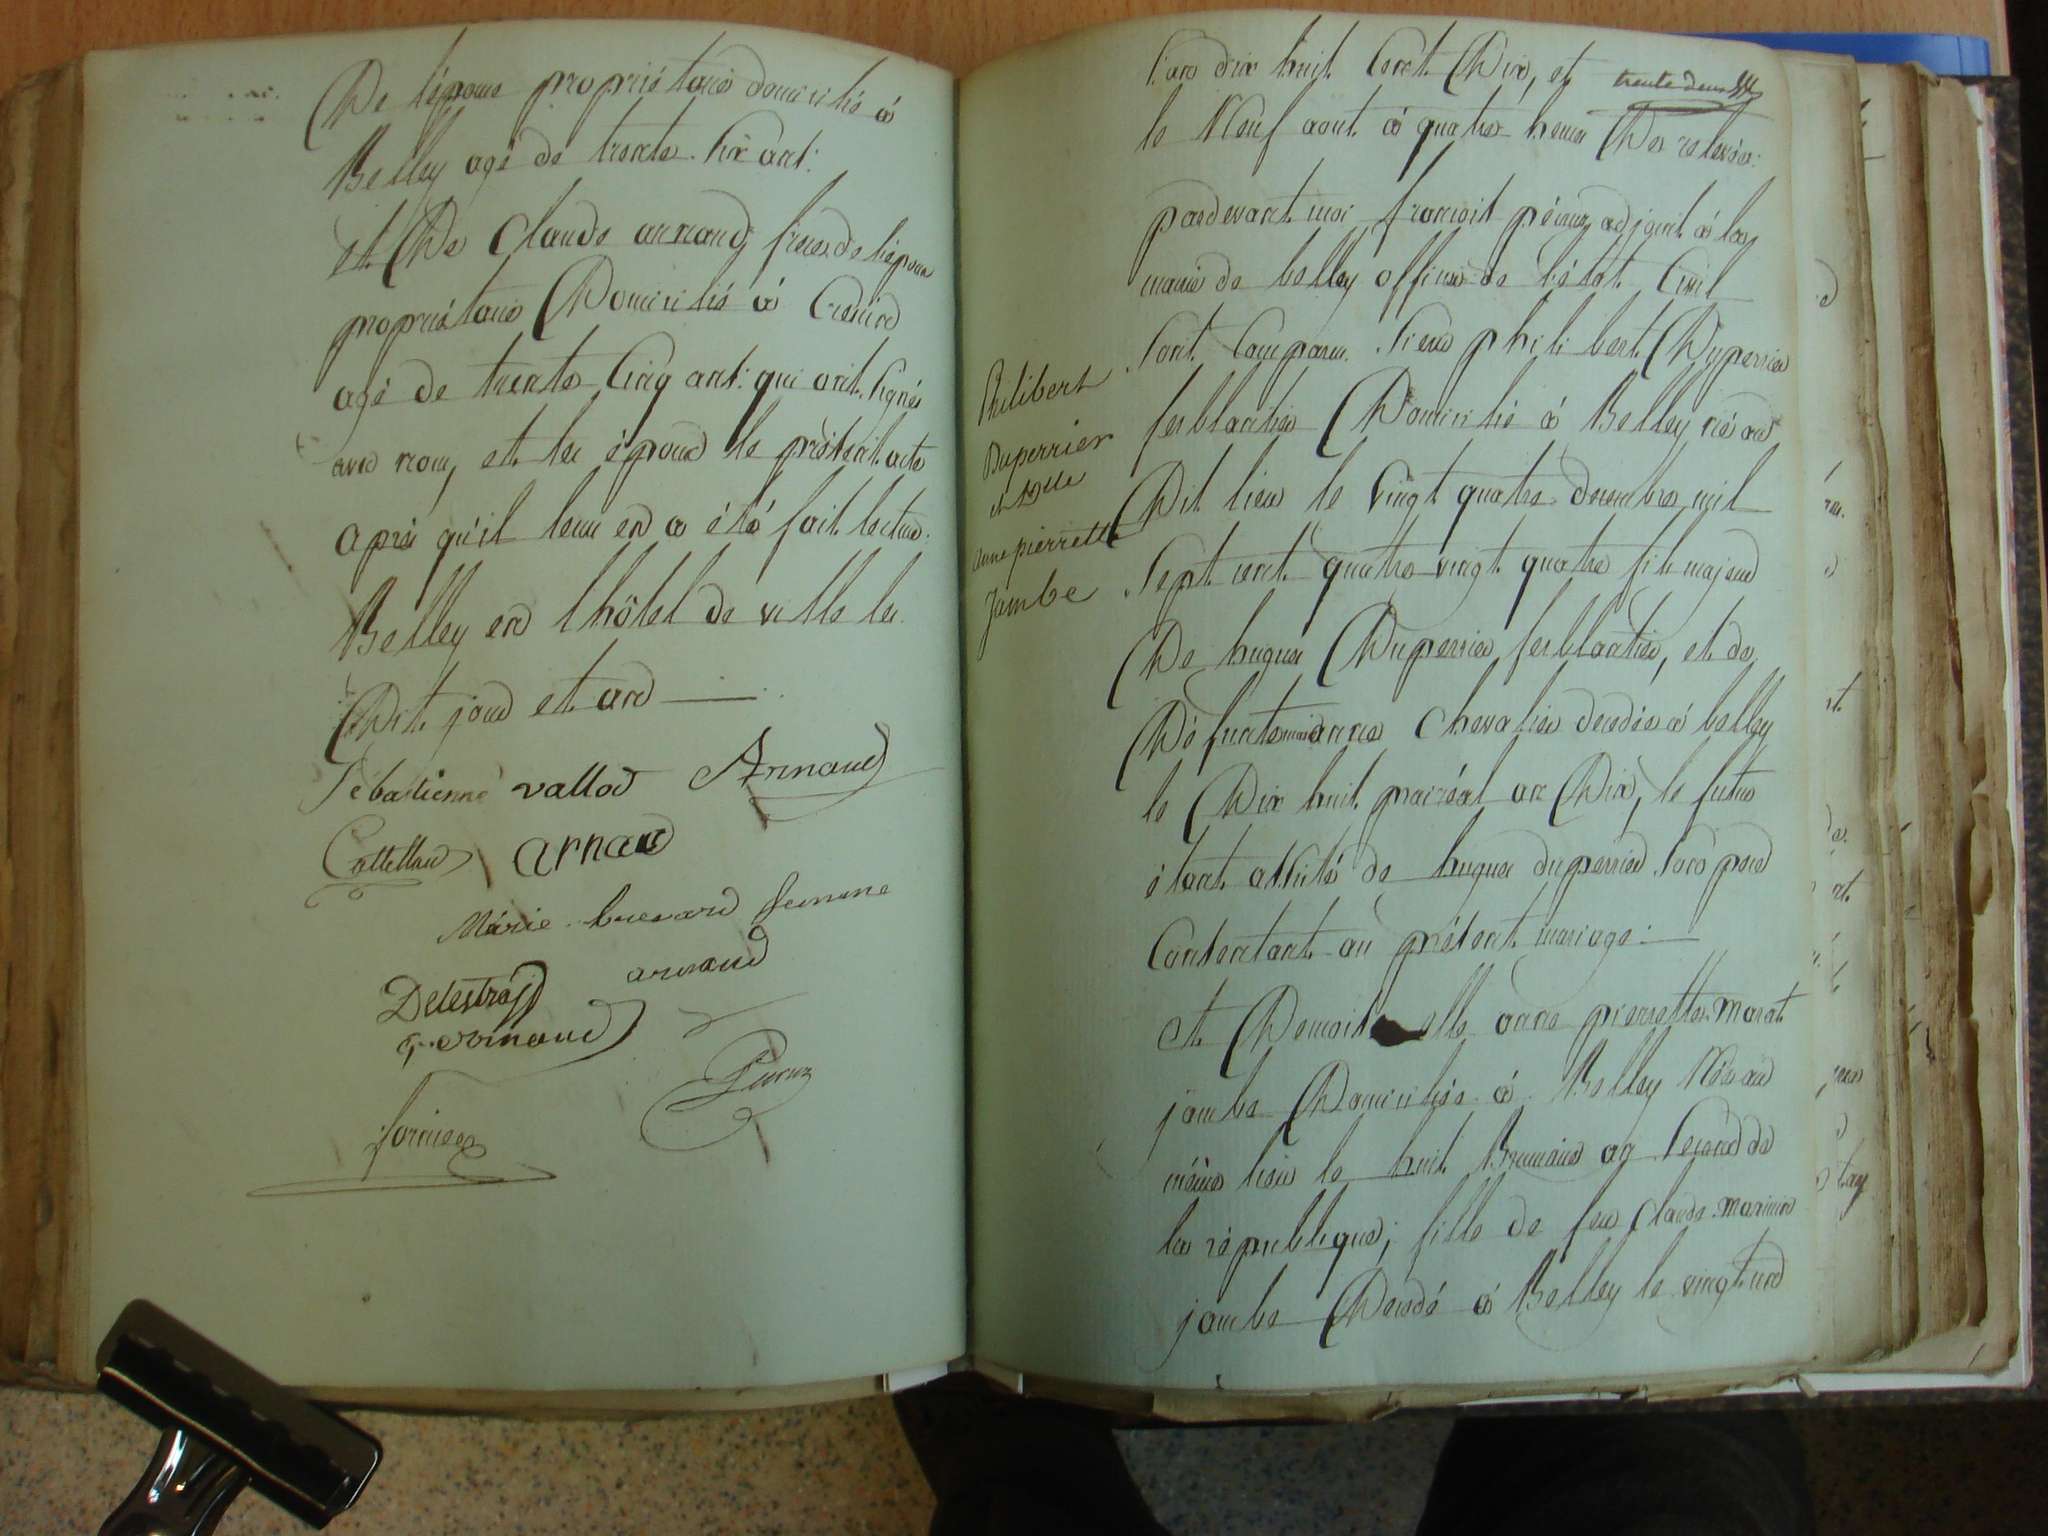 De l'épouse propriétaire domicilié à
Belley agé de trente six ans:
et De Claude arnaud, frere de l'epoux
propriétaire Domicilié à
agé de trente cinq ans: qui ont signé
avec nous, et les époux le présent acte
après qu'il leur en a été fait lecture:
Belley en l'hôtel de ville les
Dit jour et an
Sebastienne vallod Arnaud
arnaud
Marie femme
arnaud
Delestraz
arnaud
Peruz
fornier
L'an dix huit Cent Dix, et trente deux
le Neuf aout à quatre heures De relevée:
pardevant moi françois péruz adjoint à la
mairie de belley officier de l'état Civil
Sont Comparu. Sieur philibert Duperrier
ferblantier Domicilié à Belley né au
Dit lieu le vingt quatre decembre mil
Sept cent quatre vingt quatre fils majeur
De hugues Duperrier ferblantier, et de
Défunte anne Chevalier decedée à belley
le Dix huit prairéal an Dix, le futur
étant assisté de hugues duperrier son pere
Consentant au présent mariage:
et Demoiselle anne pierrette Marat
jambe Domiciliée à Belley Née au
même lieu le huit Brumaire an second de
la république; fille de feu Claude Marin
jambe Decedé à Belley le vingt un
Philibert
Duperrier
et Dlle
anne pierrette
Jambe